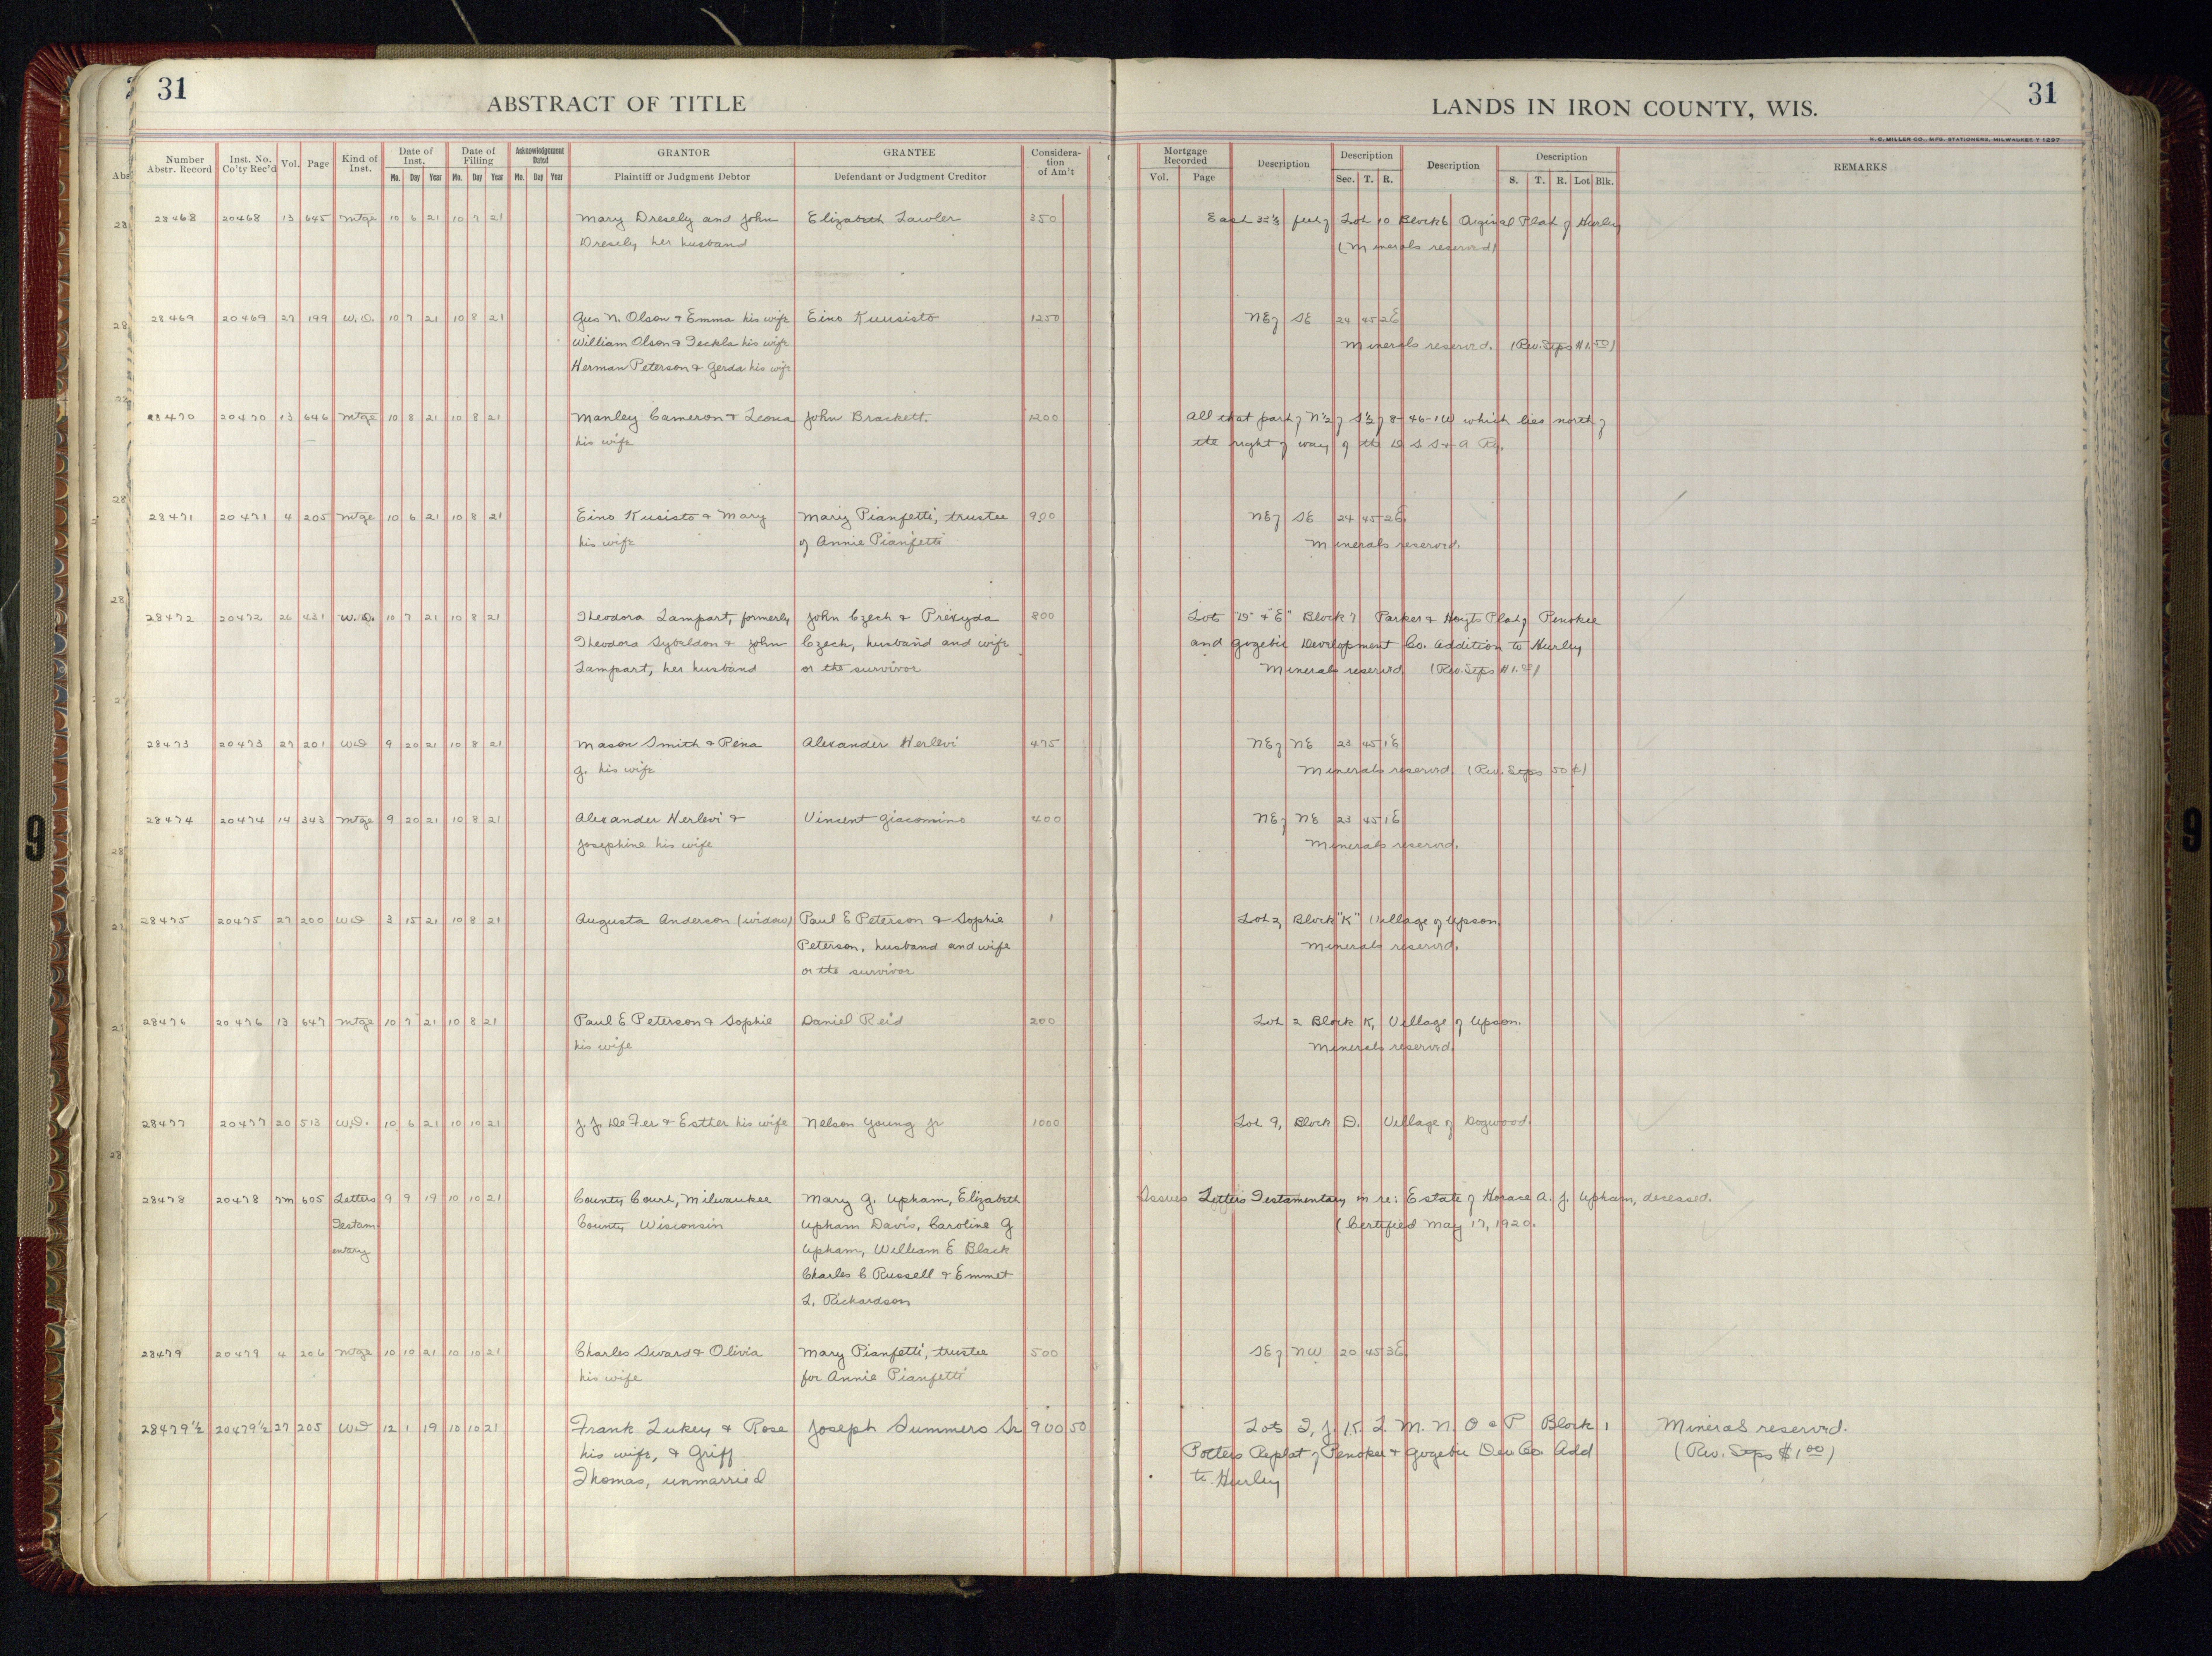 31
ABSTRACT OF TITLE
LANDS IN IRON COUNTY, WIS.
31
H. C. MILLER CO., MFG. STATIONERS, MILWAUKEE Y 1297
Number Abstr. Record | Inst. No. Co'ty Rec'd | Vol. | Page | Kind of Inst. | Date of Inst. Mo. Day Year | Date of Filling Mo. Day Year | Acknowledgement Dated Mo. Day Year | GRANTOR Plaintiff or Judgment Debtor | GRANTEE Defendant or Judgment Creditor | Consideration of Am't | Mortgage Recorded Vol. Page | Description | Description Sec. T. R. | Description | Description S. T. R. Lot Blk. | REMARKS
28468 20468 13 645 Mtge 10 6 21 10 7 21 Mary Dresely and John Elizabeth Lawler 350 East 33 1/3 feet of Lot 10 Block 6 Original Plat of Hurley
Dresely her husband (Minerals reserved)
28469 20469 27 199 W.D. 10 7 21 10 8 21 Gus N. Olson & Emma his wife Eino Kuusisto 1250 NE of SE 24 45 2E
William Olson & Teckla his wife Minerals reserved. (Rev. Stps $1.50)
Herman Peterson & Gerda his wife
28470 20470 13 646 Mtge 10 8 21 10 8 21 Manley Cameron & Leona John Brackett. 1200 All that part of N½ of S½ of 8-46-1W which lies north of
his wife the right of way of the D S S & A Ry.
28471 20471 4 205 Mtge 10 6 21 10 8 21 Eino Kusisto & Mary Mary Pianfetti, trustee 900 NE of SE 24 45 2E
his wife of Annie Pianfetti Minerals reserved.
28472 20472 26 431 W.D. 10 7 21 10 8 21 Theodora Lampart, formerly John Czech & Prexyda 800 Lots "D" & "E" Block 7 Parker & Hoyts Plat of Penokee
Theodora Sybeldon & John Czech, husband and wife and Gogebic Development Co. Addition to Hurley
Lampart, her husband or the survivor Minerals reserved (Rev. Stps $1.00)
28473 20473 27 201 WD 9 20 21 10 8 21 Mason Smith & Rena Alexander Herlevi 475 NE of NE 23 45 1E
G. his wife Minerals reserved (Rev. Stps 50¢)
28474 20474 14 343 Mtge 9 20 21 10 8 21 Alexander Herlevi & Vincent Giacomino 400 NE of NE 23 45 1E
Josephine his wife Minerals reserved.
28475 20475 27 200 WD 3 15 21 10 8 21 Augusta Anderson (widow) Paul E Peterson & Sophie 1 Lot 2, Block "K" Village of Upson.
Peterson, husband and wife Minerals reserved.
or the survivor
28476 20476 13 647 Mtge 10 7 21 10 8 21 Paul E Peterson & Sophie Daniel Reid 200 Lot 2 Block K, Village of Upson.
his wife Minerals reserved.
28477 20477 20 513 W.D. 10 6 21 10 10 21 J. J. De Fer & Esther his wife Nelson Young Jr 1000 Lot 9, Block D. Village of Dogwood.
28478 20478 7m 605 Letters 9 9 19 10 10 21 County Court, Milwaukee Mary G. Upham, Elizabeth Issues Letters Testamentary in re: Estate of Horace A. J. Upham, deceased.
Testam- County Wisconsin Upham Davis, Caroline G (Certified May 17, 1920.
entary Upham, William E Black
Charles C Russell & Emmet
L. Richardson
28479 20479 4 206 Mtge 10 10 21 10 10 21 Charles Sward & Olivia Mary Pianfetti, trustee 500 SE of NW 20 45 3E
his wife for Annie Pianfetti
28479½ 20479½ 27 205 WD 12 1 19 10 10 21 Frank Lukey & Rose Joseph Summers Sr 900 50 Lots I, J. K. L. M. N. O & P Block 1 Minerals reserved.
his wife, & Griff Potters Replat of Penokee & Gogebic Dev Co Add (Rev. Stps $1.00)
Thomas, unmarried to Hurley
9
9